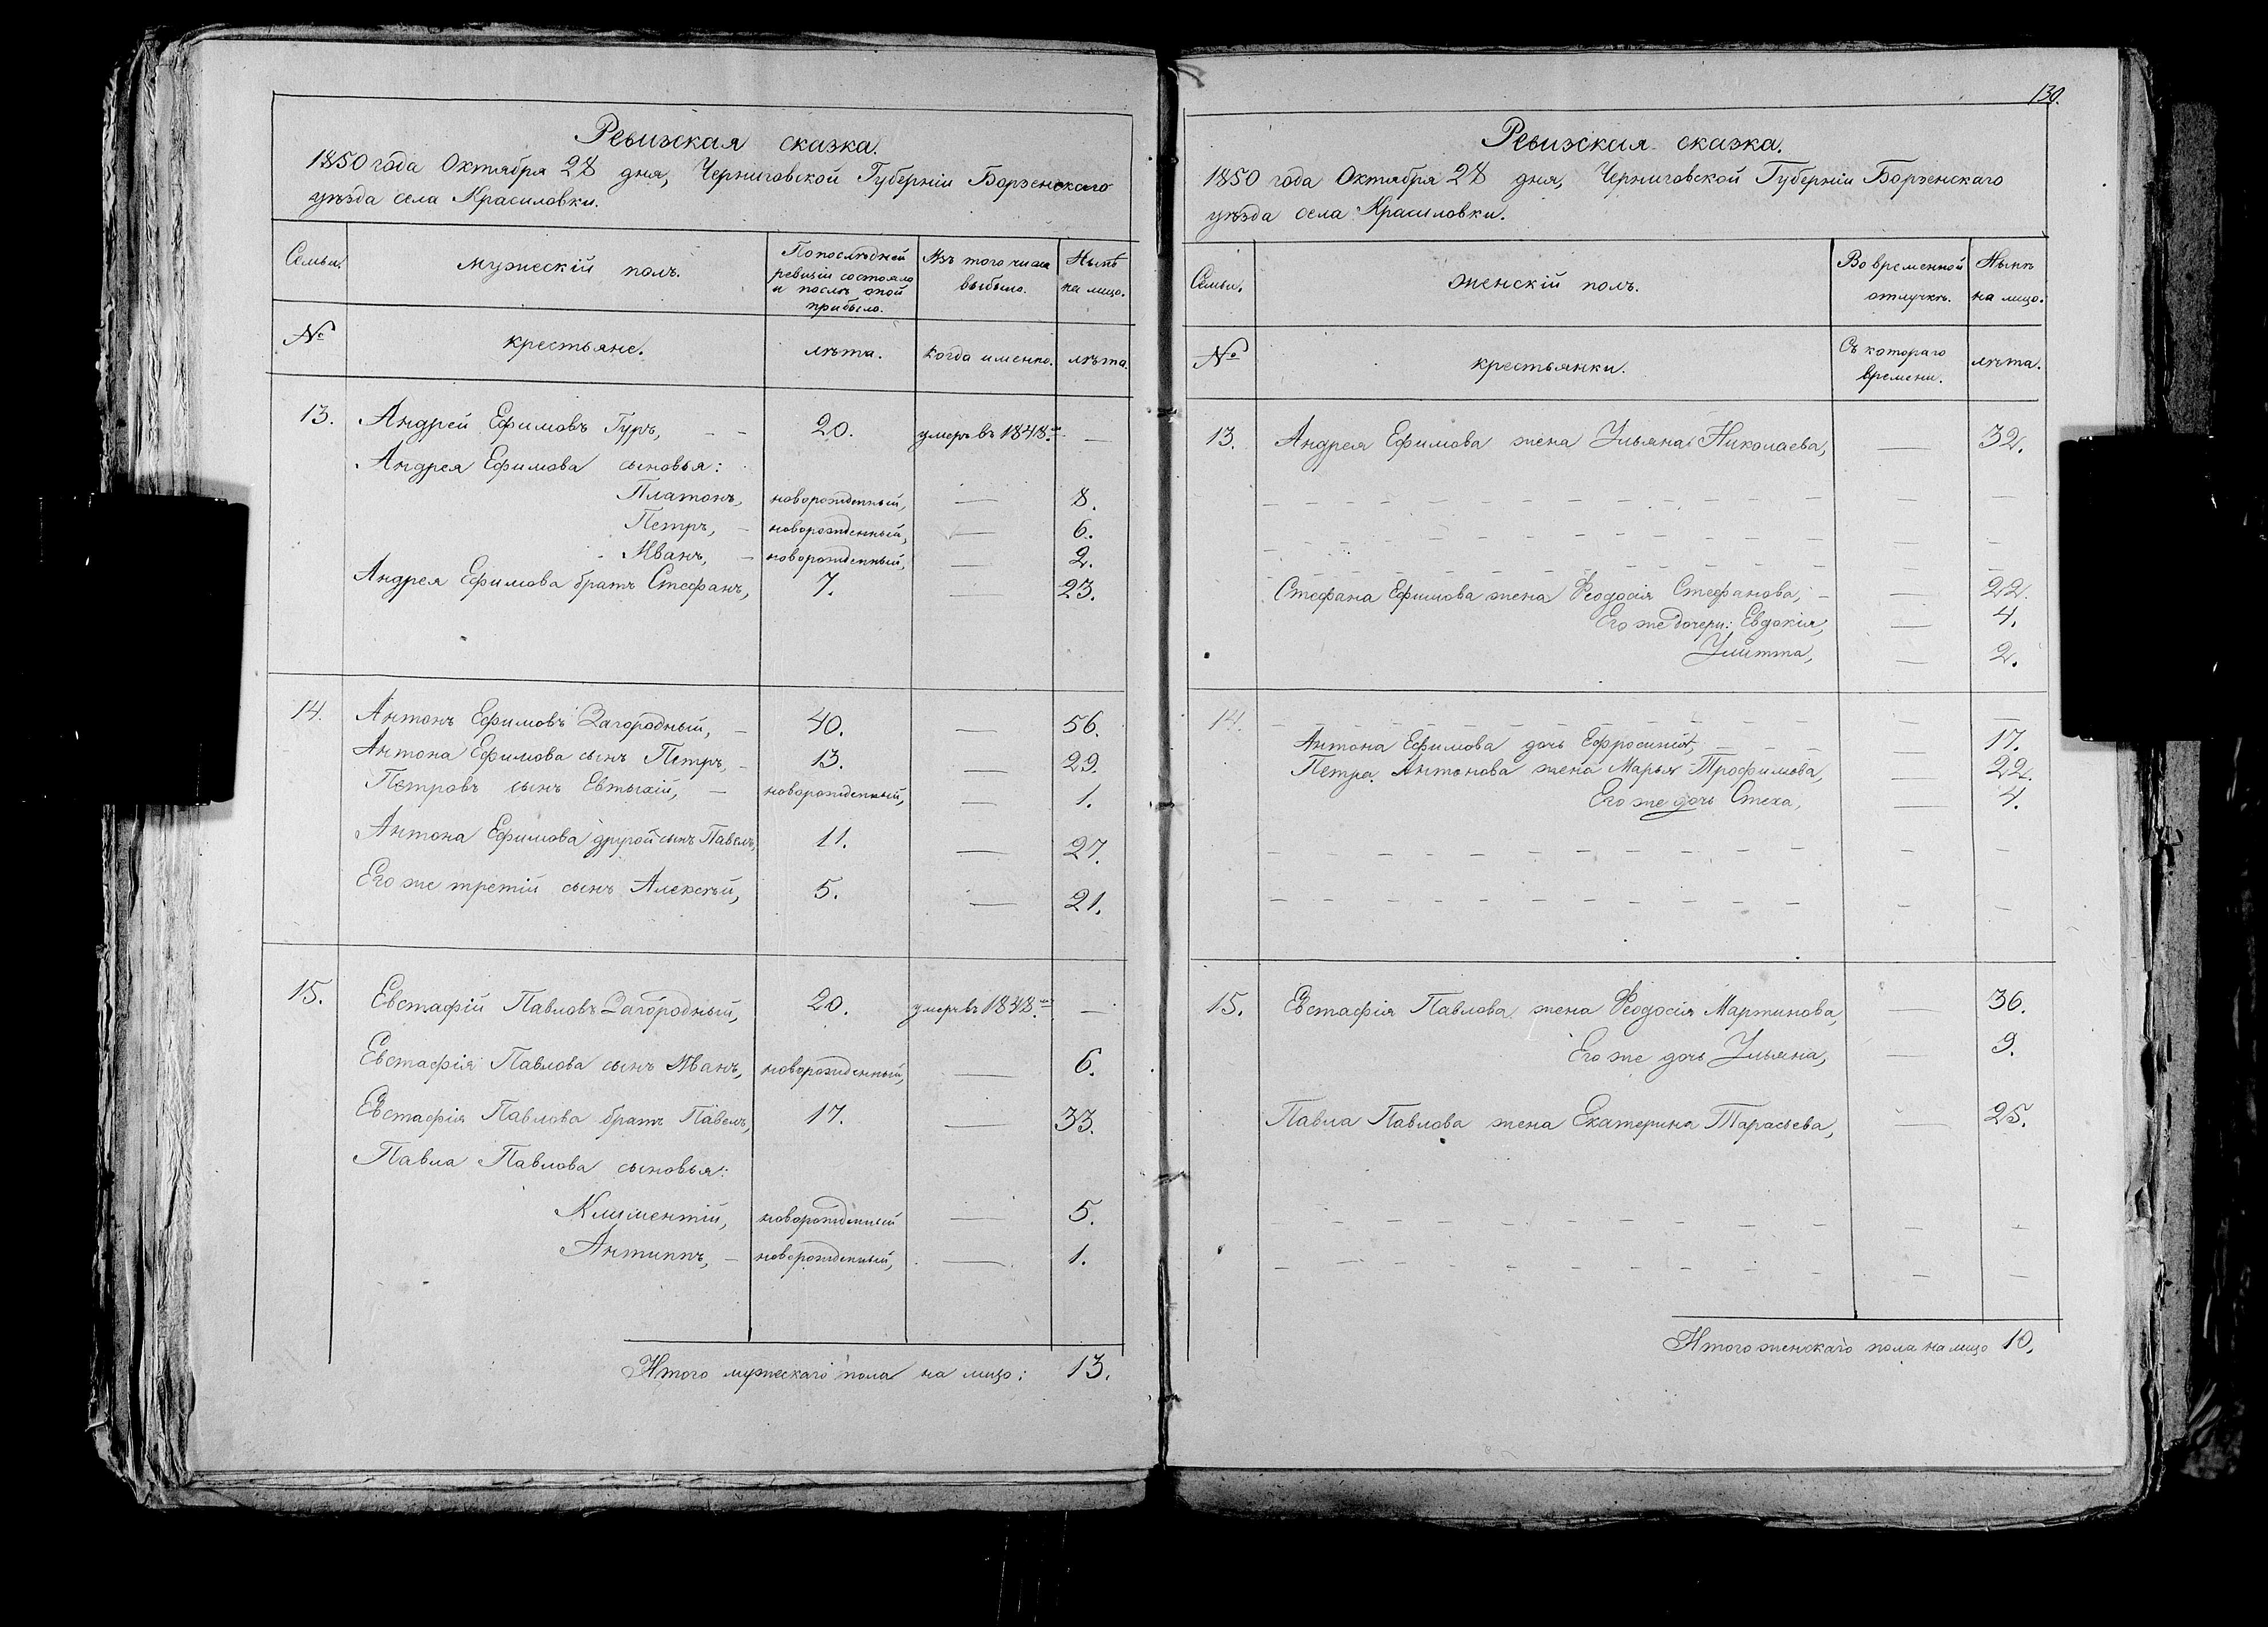 Ревизская сказка.
1850 года Октября 28 дня, Черниговской Губерніи Борзенскаго
уѣзда села Красиловки.
Семьи.
мужескій полъ.
По послѣдней
ревизіи состояло
и послѣ оной
прибыло.
Изъ того числа
выбыло.
Нынѣ
на лицо.
№
крестьяне.
лѣта.
когда именно.
лѣта.
13. Андрей Ефимовъ Гуръ, 20. умеръ въ 1848.м —
Андрея Ефимова сыновья:
Платонъ, новорожденный, — 8.
Петръ, — новорожденный, — 6.
Иванъ, — новорожденный, — 2.
Андрея Ефимова братъ Стефанъ, 7. — 23.
14. Антонъ Ефимовъ Загородный, — 40. — 56.
Антона Ефимова сынъ Петръ, — 13. — 29.
Петровъ сынъ Евтыхій, — новорожденный, — 1.
Антона Ефимова другой сынъ Павелъ, 11. — 27.
Его же третій сынъ Алексѣй, 5. — 21.
15. Евстафій Павловъ Загородный, 20. умеръ въ 1848.м —
Евстафія Павлова сынъ Иванъ, новорожденный, — 6.
Евстафія Павлова братъ Павелъ, 17. — 33.
Павла Павлова сыновья:
Климентій, новорожденный — 5.
Антиппъ, — новорожденный, — 1.
Итого мужескаго пола на лицо: 13.
130.
Ревизская сказка.
1850 года Октября 28 дня, Черниговской Губерніи Борзенскаго
уѣзда села Красиловки.
Семьи.
женскій полъ.
Во временной
отлучкѣ.
Нынѣ
на лицо.
№
крестьянки.
Съ котораго
времени.
лѣта.
13. Андрея Ефимова жена Ульяна Николаева, — 32.
Стефана Ефимова жена Ѳеодосія Стефанова, — — 22.
Его же дочери: Евдокія, — 4.
Улитта, — 2.
14.
Антона Ефимова дочь Ефросинія, — 17.
Петра Антонова жена Марья Трофимова, — 22.
Его же дочь Стеха, — 4.
15. Евстафія Павлова жена Ѳеодосія Мартинова, — 36.
Его же дочь Ульяна, — 9.
Павла Павлова жена Екатерина Тарасьева, — 25.
Итого женскаго пола на лицо 10.